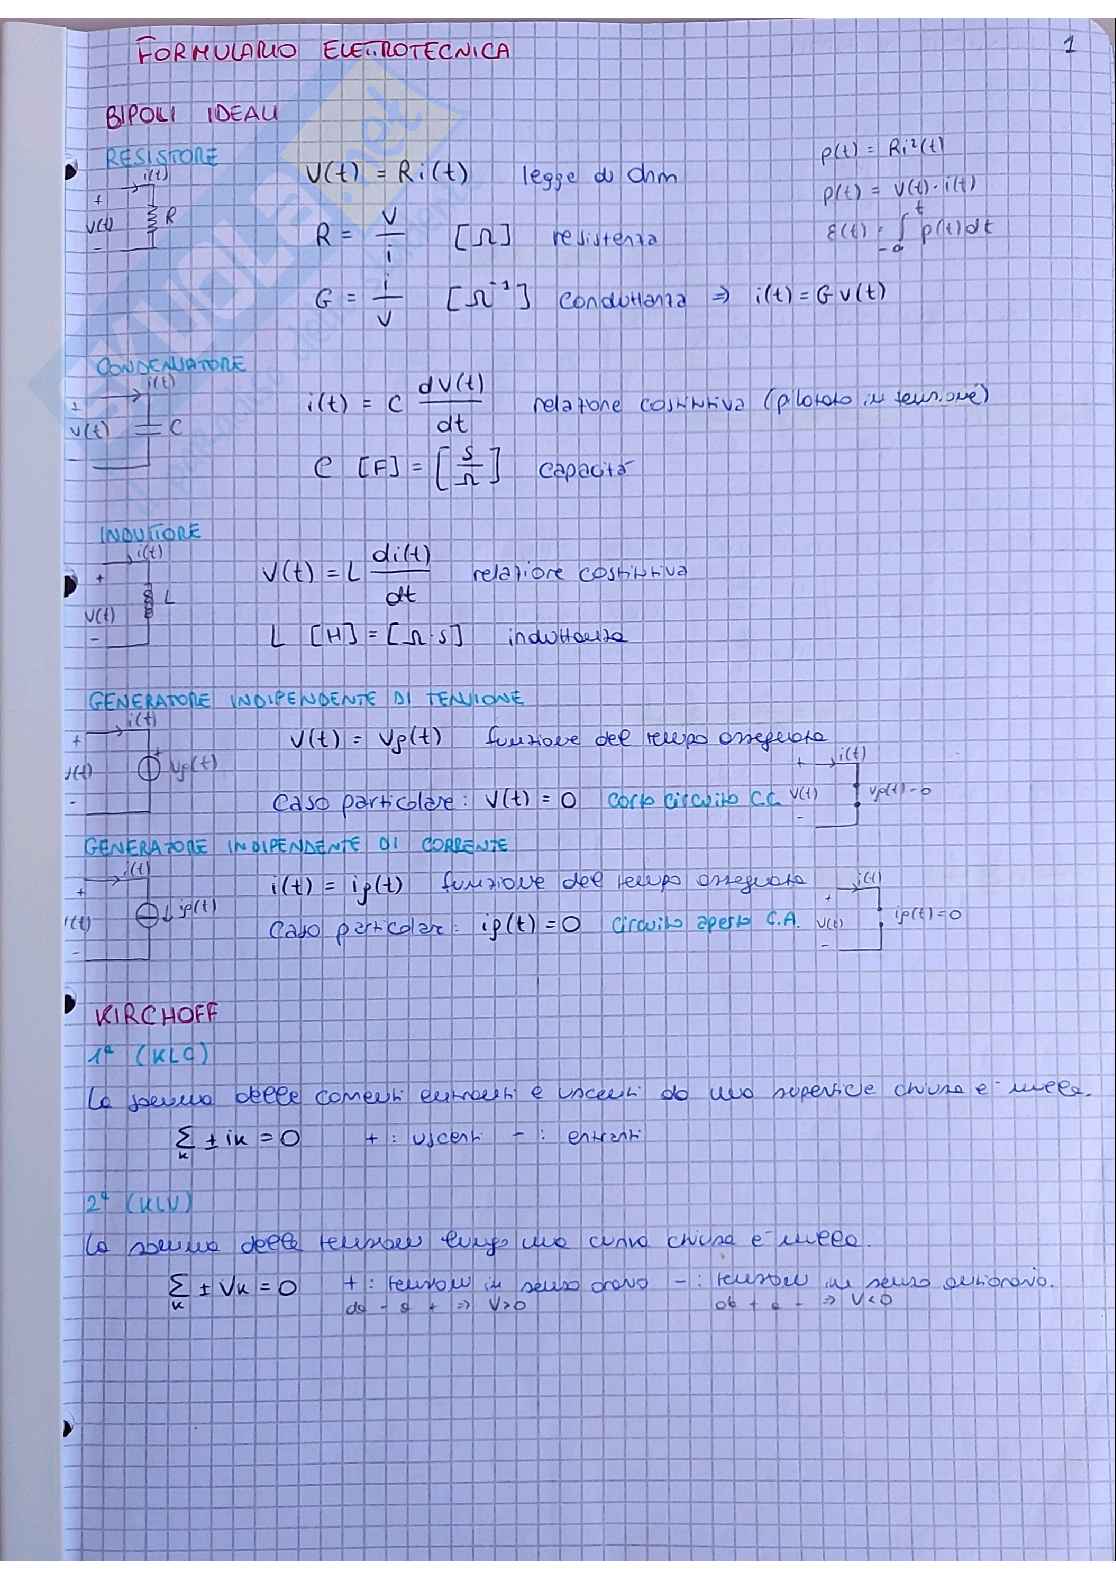 FORMULARIO ELETTROTECNICA 1
BIPOLI IDEALI
RESISTORE
i(t)
+
V(t) R
-
V(t) = Ri(t) legge di Ohm
R = V/i [Ω] resistenza
G = i/V [Ω⁻¹] conduttanza ⇒ i(t) = G V(t)
p(t) = Ri²(t)
p(t) = V(t)·i(t)
ε(t) = ∫ p(t)dt
CONDENSATORE
i(t)
+
V(t) C
-
i(t) = C dV(t)/dt relazione costitutiva (pilotato in tensione)
C [F] = [S/Ω] capacità
INDUTTORE
i(t)
+
V(t) L
-
V(t) = L di(t)/dt relazione costitutiva
L [H] = [Ω·S] induttanza
GENERATORE INDIPENDENTE DI TENSIONE
i(t)
+
V(t) Vg(t)
-
V(t) = Vg(t) funzione del tempo assegnata
Caso particolare: V(t) = 0 corto circuito C.C.
+ i(t)
V(t) Vg(t)=0
-
GENERATORE INDIPENDENTE DI CORRENTE
i(t)
+
V(t) ↓ig(t)
-
i(t) = ig(t) funzione del tempo assegnata
Caso particolare: ig(t) = 0 circuito aperto C.A.
+ i(t)
V(t) ig(t)=0
-
KIRCHOFF
1ª (KLC)
La somma delle correnti entranti e uscenti da una superficie chiusa e' nulla.
Σ ± ik = 0 + : uscenti - : entranti
k
2ª (KLV)
La somma delle tensioni lungo una curva chiusa e' nulla.
Σ ± Vk = 0 + : tensioni in senso orario - : tensioni in senso antiorario.
k da - a + ⇒ V>0 da + a - ⇒ V<0